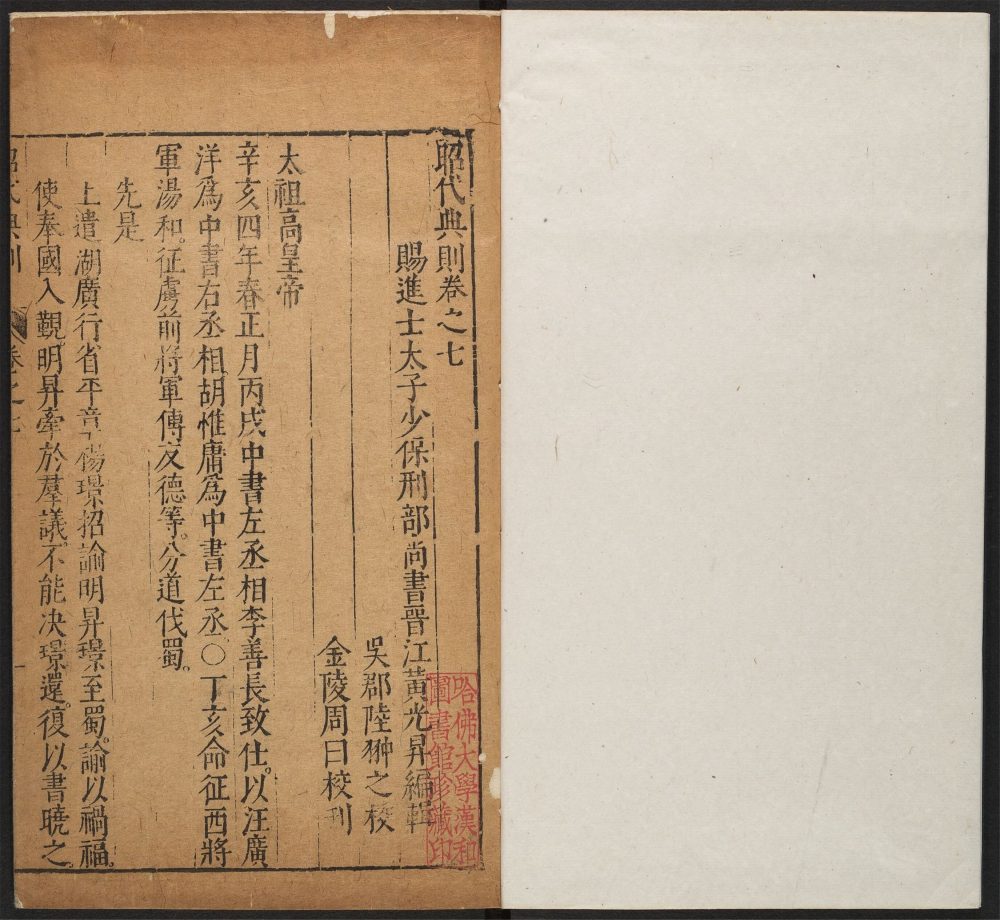 昭代典則卷之七
賜進士太子少保刑部尚書晉江黃光昇編輯
吳郡陸翀之校
金陵周曰校刊
太祖高皇帝
辛亥四年春正月丙戌中書左丞相李善長致仕。以汪廣
洋爲中書右丞相。胡惟庸爲中書左丞。○丁亥命征西將
軍湯和。征虜前將軍傅友德等。分道伐蜀。
先是
上遣湖廣行省平章楊璟招諭明昇璟至蜀。諭以禍福。
使奉國入覲。明昇牽於羣議。不能決璟還。復以書曉之。
昭代典則 卷之七 一
哈佛大學漢和
圖書館珍藏印